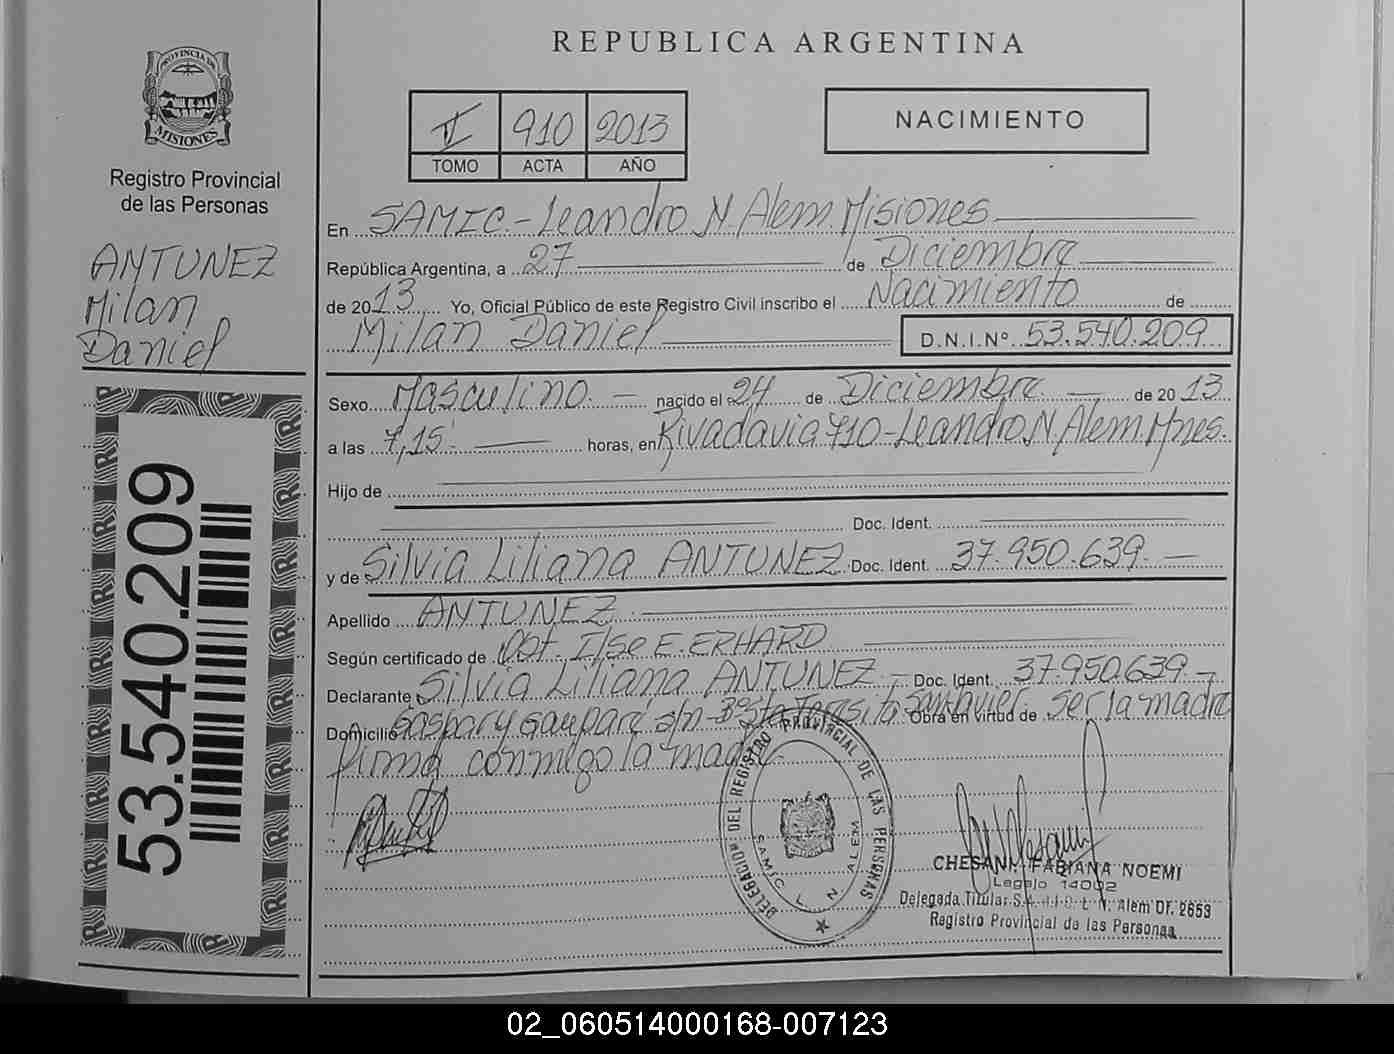 REPUBLICA ARGENTINA
PROVINCIA DE
MISIONES
Registro Provincial
de las Personas
ANTUNEZ
Milan
Daniel
53.540.209
910 2013
TOMO ACTA AÑO
NACIMIENTO
En SAMIC.-Leandro N Alem. Misiones
República Argentina, a 27 de Diciembre
de 2013 Yo, Oficial Público de este Registro Civil inscribo el Nacimiento de
Milan Daniel D.N.I.Nº 53.540.209
Sexo Masculino. — nacido el 24 de Diciembre. — de 2013
a las 7,15 horas, en Rivadavia 710-Leandro N Alem Mnes.
Hijo de
Doc. Ident.
y de Silvia Liliana ANTUNEZ Doc. Ident. 37.950.639.—
Apellido ANTUNEZ
Según certificado de Obt. Ilse E. ERHARD
Declarante Silvia Liliana ANTUNEZ — Doc. Ident. 37.950.639 —
Domicilio s/n Obra en virtud de ser la madre
firma conmigo la madre.
DELEGACION DEL REGISTRO PROVINCIAL DE LAS PERSONAS
SAMIC L N ALEM
CHESANI, FABIANA NOEMI
Legajo 14002
Delegada Titular L. N. Alem Of. 2653
Registro Provincial de las Personas
02_060514000168-007123